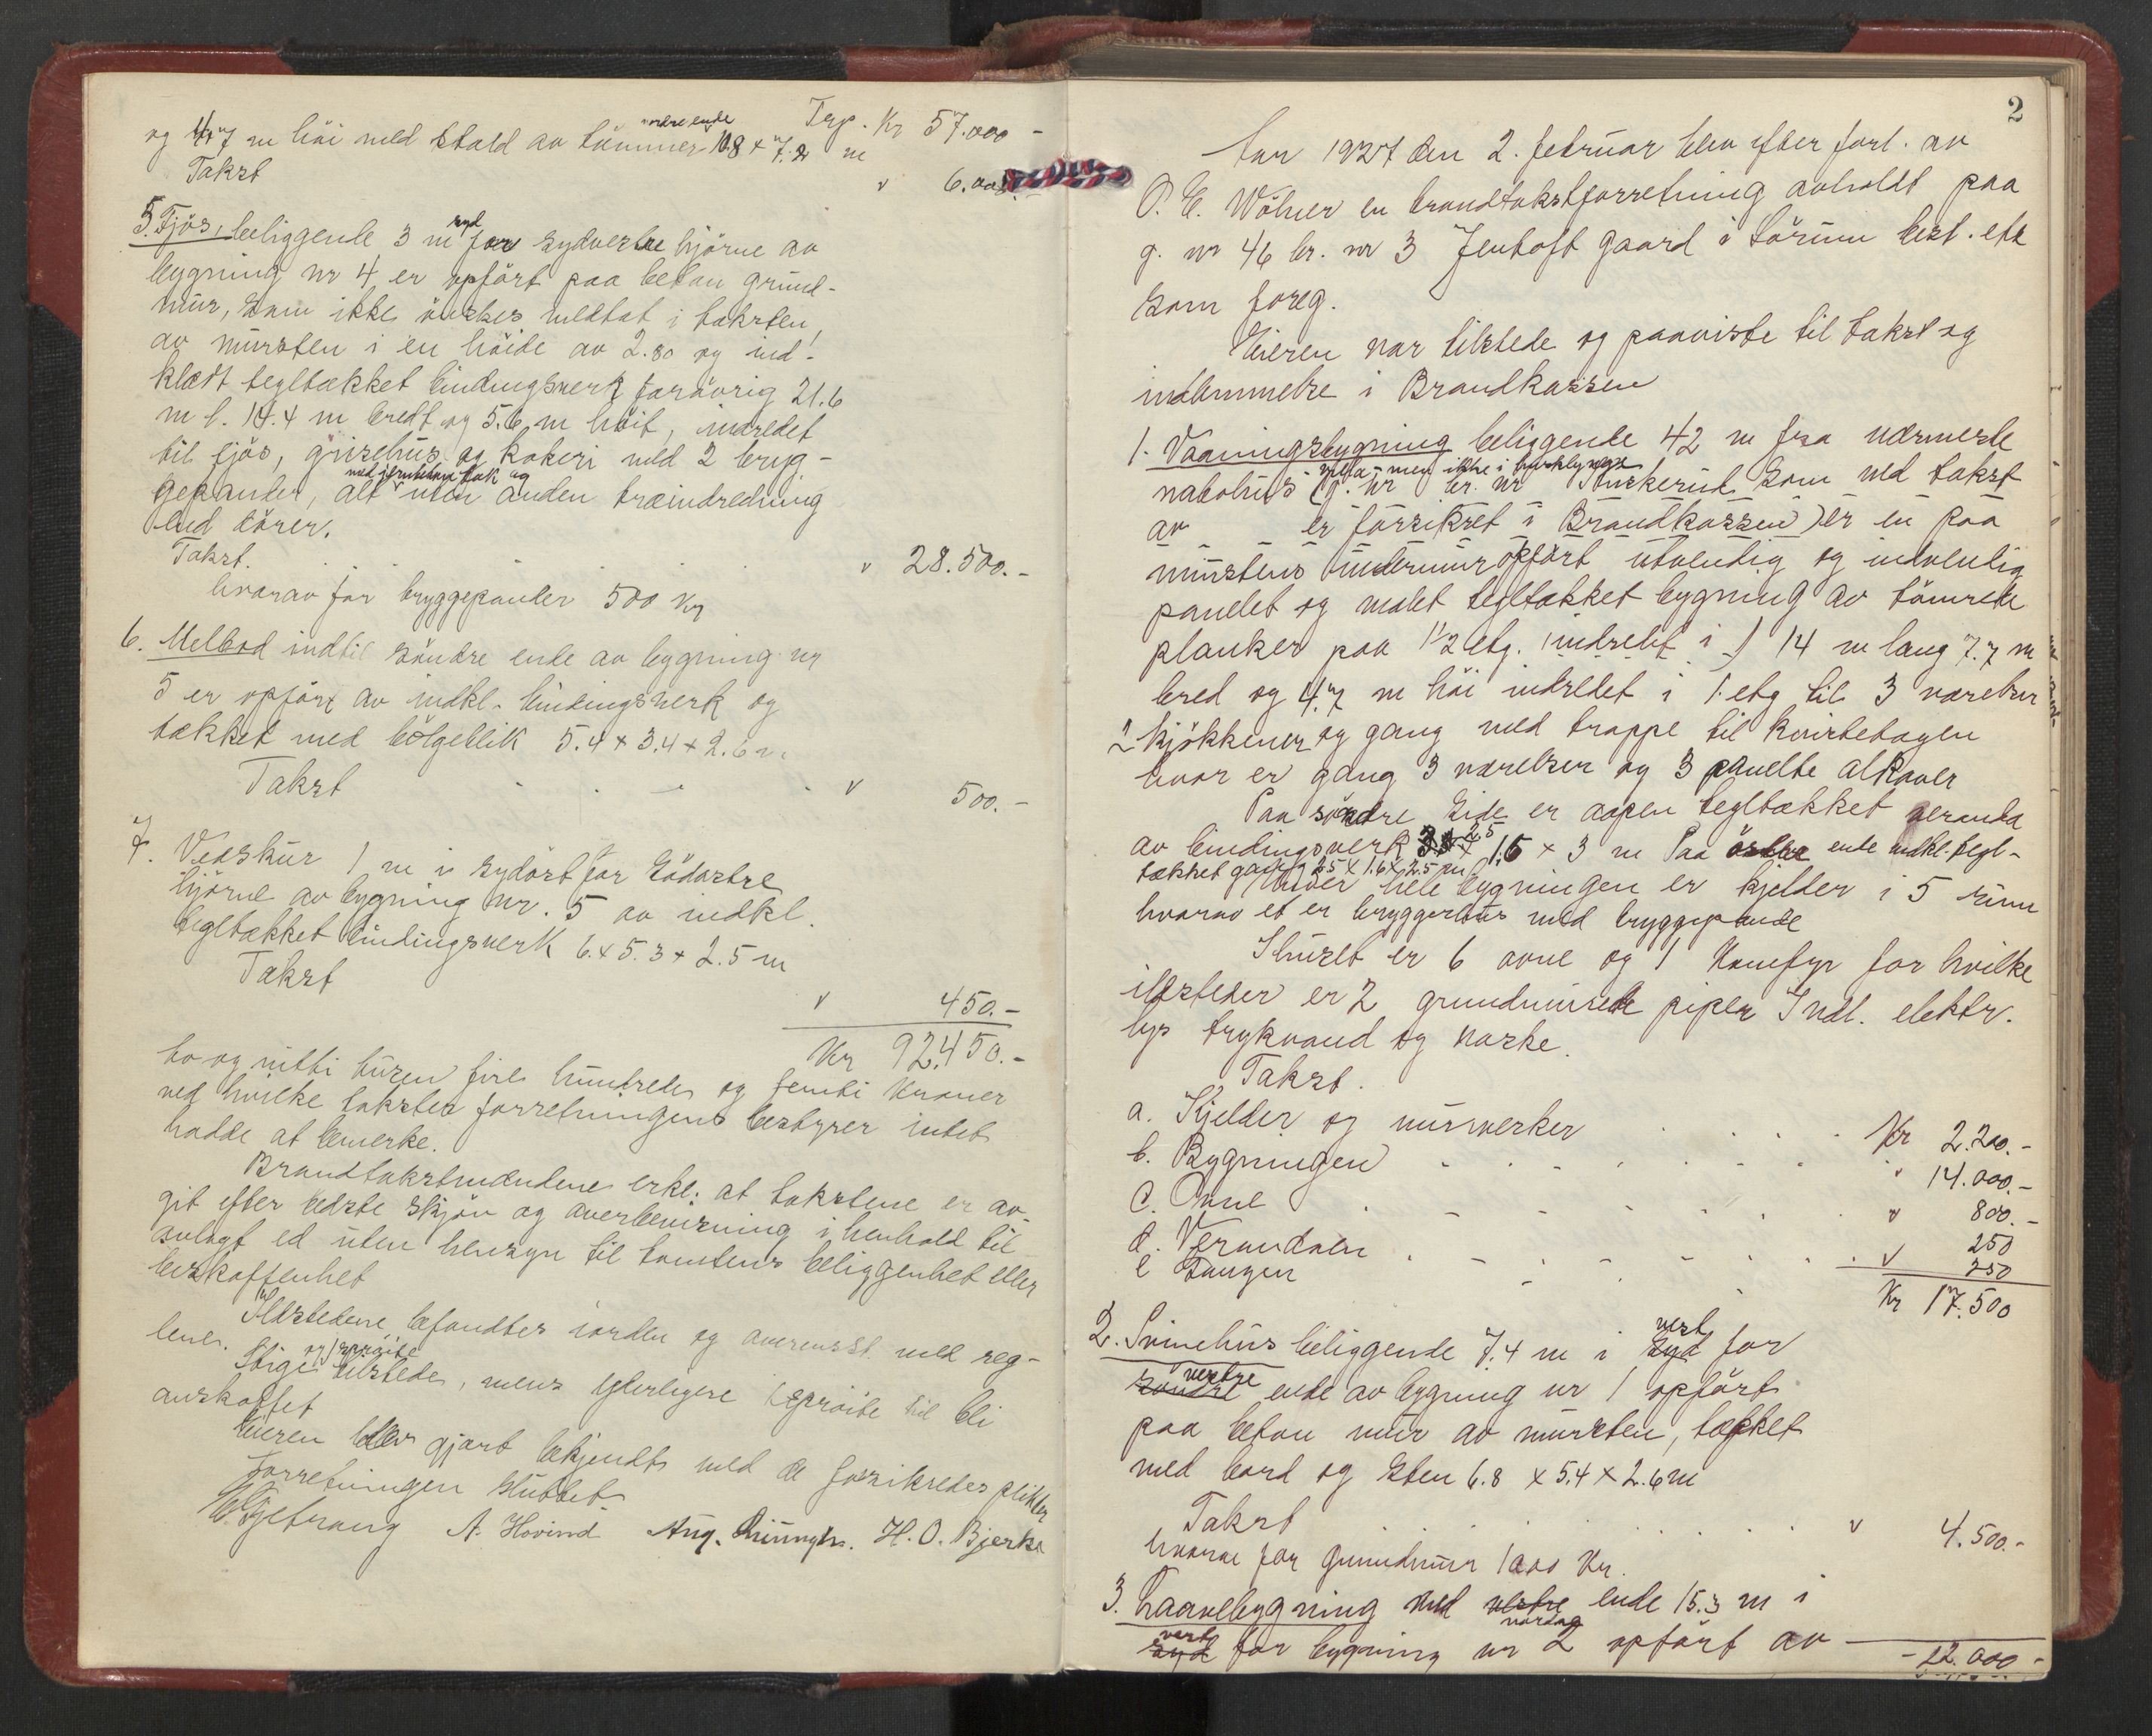 Trp. Kr 57.000 -
og 4.7 m höi med stald av tømmer nordre ende 10.8 x 7.2 m
Takst " 6.000.-
5. Fjös, beliggende 3 m syd for sydvestre hjörne av
bygning nr 4 er opfört paa beton grund-
mur, som ikke önskes medtat i taksten,
av mursten i en höide av 2.80 og ind-
klædt tegltækket bindingsverk forövrig 21.6
m l. 14.4 m bredt og 5.6 m höit, indredet
til fjös, grisehus og kokeri med 2 bryg-
gepander, alt med jernbeton tak og uten anden træindredning
end dörer.
Takst. " 28.500.-
hvorav for bryggepander 500 Kr
6. Melbod indtil söndre ende av bygning nr
5 er opfört av indkl. bindingsverk og
tækket med bölgeblik 5.4 x 3.4 x 2.6 m.
Takst " 500.-
7. Vedskur 1 m i sydöst for södöstre
hjörne av bygning nr. 5 av indkl.
tegltækket bindingsverk 6. x 5.3 x 2.5 m
Takst " 450.-
Kr 92.450.-
to og nitti tusen fire hundrede og femti kroner
ved hvilke takster forretningens bestyrer intet
hadde at bemerke.
Brandtakstmændene erkl. at takstene er av-
git efter bedste skjön og overbevisning i henhold til
avlagt ed uten hensyn til tomtens beliggenhet eller
beskaffenhet
Ildstedene befandtes iorden og overensst. med reg-
lene.
Stige og 1 spröite tilstede, mens yderligere 1 spröite vil bli
anskaffet
Eieren blev gjort bekjendt med de forsikredes plikter
Forretningen sluttet
A. Hovind Aug. H. O. Bjerke
2
Aar 1927 den 2. februar blev efter forl. av
O. E. Wölner en brandtakstforretning avholdt paa
g. nr 46 br. nr 3 Jentoft gaard i Sörum best. etc
som foreg.
Eieren var tilstede og paaviste til takst og
indlemmelse i Brandkassen
1. Vaaningsbygning beliggende 42 m fra nærmeste
nabohus (g. nr br. nr som ved takst
av er forsikret i Brandkassen) er en paa
murstens undermur opfört utvendig og indvendig
panelet og malet tegltækket bygning av tömrede
planker paa 1 1/2 etg. indredet i 14 m lang 7.7 m
bred og 4.7 m höi indredet i 1. etg til 3 værelser
2 kjökkener og gang med trappe til kvistetagen
hvor er gang 3 værelser og 3 panelte alkover
Paa söndre side er aapen tegltækket veranda
av bindingsverk 2.5 x 1.6 x 3 m Paa östre ende indkl. tegl-
tækket gang 2.5 x 1.6 x 2.5 m
Under hele bygningen er kjelder i 5 rum
hvorav et er bryggerhus med bryggepande
I huset er 6 ovne og 1 komfyr for hvilke
ildsteder er 2 grundmurede piper Indl. elektr.
lys trykvand og vaske.
Takst.
a. Kjelder og murverker Kr 2.200.-
b. Bygningen " 14.000.-
c. Ovne " 800.-
d. Verandaen " 250
e Gangen 250
Kr 17.500
2. Svinehus beliggende 7.4 m i syd vest for
söndre vestre ende av bygning nr 1 opfört
paa beton mur av mursten, tækket
med bord og sten 6.8 x 5.4 x 2.6 m
Takst " 4.500.-
hvorav for grundmur 1000 Kr.
3. Laavebygning med vestre nordre ende 15.3 m i
syd vest for bygning nr 2 opfört av
- 22.000 -